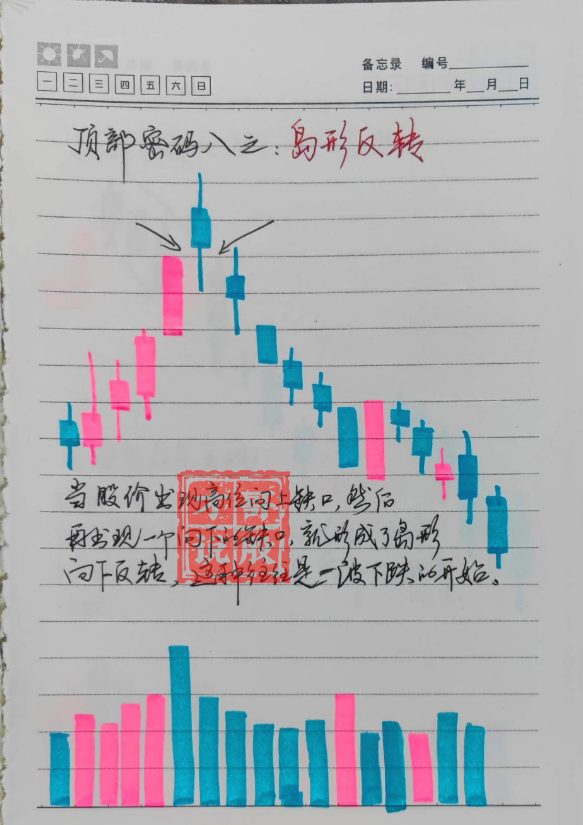 备忘录 编号
一 二 三 四 五 六 日
日期: 年 月 日
顶部密码八之:岛形反转
当股价出现高位向上缺口,然后
再出现一个向下的缺口,就形成了岛形
向下反转,这种往往是一波下跌的开始。